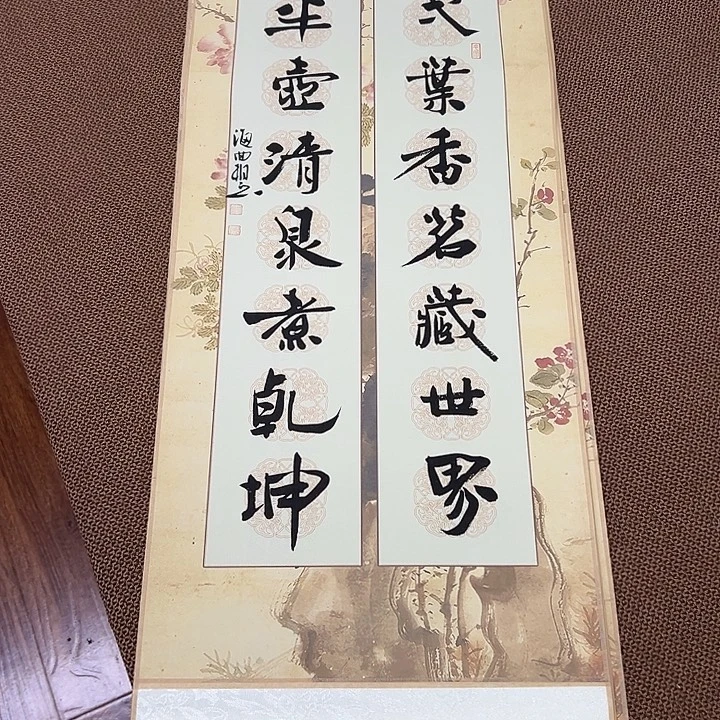 葉香茗藏世界
半壺清泉煮乾坤
海曲